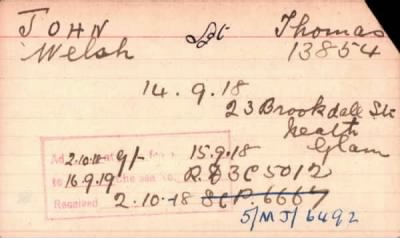 JOHN Sgt Thomas
Welsh 13854
14.9.18
23 Brookdale St
Neath
Glam
Ad 2.10.18 9/- 15.9.18
to 16.9.19 R.D 3C5012
Received 2.10.18 SCP.6667
5/MJ/6492